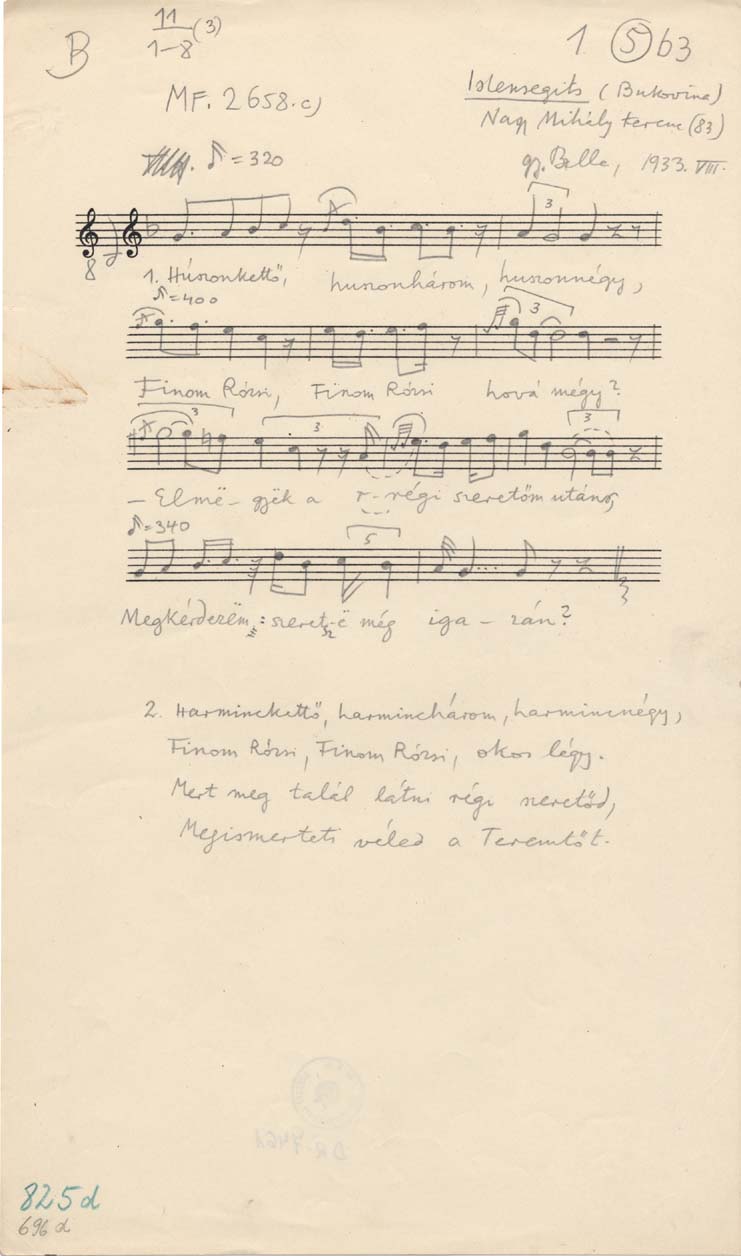 B
11
1-8 (3)
1 5 b3
MF. 2658. c)
Istensegits (Bukovina)
Nagy Mihály Ferenc (83)
♪ = 320
gy. Balla, 1933. VIII.
3
8
1. Húszonkettő, huszonhárom, huszonnégy,
♪ = 400
3
Finom Rózsi, Finom Rózsi hová mégy?
3 3 3
– Elmë – gyëk a r-régi szeretőm után,
♪ = 340
5
Megkérdezëm: szeret-ë még iga – zán?
sz
2. Harminckettő, harminchárom, harmincnégy,
Finom Rózsi, Finom Rózsi, okos légy.
Mert meg talál látni régi szeretőd,
Megismerteti véled a Teremtőt.
825 d
696 d